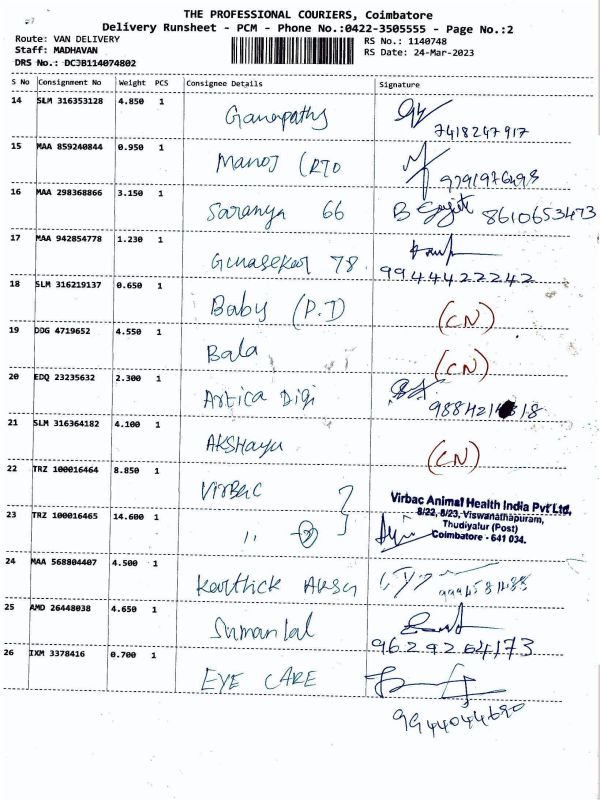 THE PROFESSIONAL COURIERS, Coimbatore
Delivery Runsheet - PCM - Phone No.:0422-3505555 - Page No.:2
Route: VAN DELIVERY RS No.: 1140748
Staff: MADHAVAN RS Date: 24-Mar-2023
DRS No.: DCJB114074802
S No Consignment No Weight PCS Consignee Details Signature
14 SLM 316353128 4.850 1
Ganapathy
7418247917
15 MAA 859240844 0.950 1
Manoj (RTO
9791976493
16 MAA 298368866 3.150 1
Saranya 66 B 8610653473
17 MAA 942854778 1.230 1
Gunasekar 78
9944422242
18 SLM 316219137 0.650 1
Baby (P.D) (CN)
19 DDG 4719652 4.550 1
Bala (CN)
20 EDQ 23235632 2.300 1
Artica Digi
21 SLM 316364182 4.100 1
Akshaya (CN)
22 TRZ 100016464 8.850 1
Virbac
Virbac Animal Health India Pvt Ltd,
8/22, 8/23, Viswanathapuram,
23 TRZ 100016465 14.600 1
Thudiyalur (Post)
" 2 Coimbatore - 641 034.
24 MAA 568804407 4.500 1
Karthick
25 AMD 26448038 4.650 1
Sumanlal
9629264173
26 IXM 3378416 0.700 1
EYE CARE
9944044690